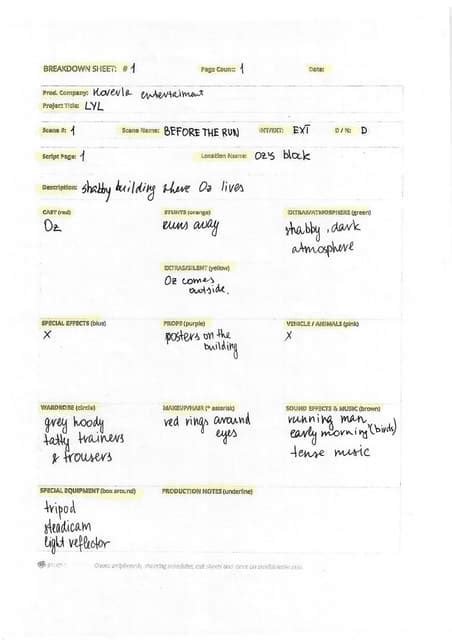 BREAKDOWN SHEET: # 1 Page Count: 1 Date:
Prod. Company: entertaiment
Project Title: LYL
Scene #: 1 Scene Name: BEFORE THE RUN INT/EXT: EXT D / N: D
Script Page: 1 Location Name: Oz's block
Description: shabby building where Oz lives
CAST (red) STUNTS (orange) EXTRAS/ATMOSPHERE (green)
Oz runs away shabby, dark
atmosphere
EXTRAS/SILENT (yellow)
Oz comes
outside.
SPECIAL EFFECTS (blue) PROPS (purple) VEHICLE / ANIMALS (pink)
X posters on the X
building
WARDROBE (circle) MAKEUP/HAIR (* asterisk) SOUND EFFECTS & MUSIC (brown)
grey hoody red rings around running man
tatty trainers eyes early morning (birds)
& trousers tense music
SPECIAL EQUIPMENT (box around) PRODUCTION NOTES (underline)
tripod
steadicam
light reflector